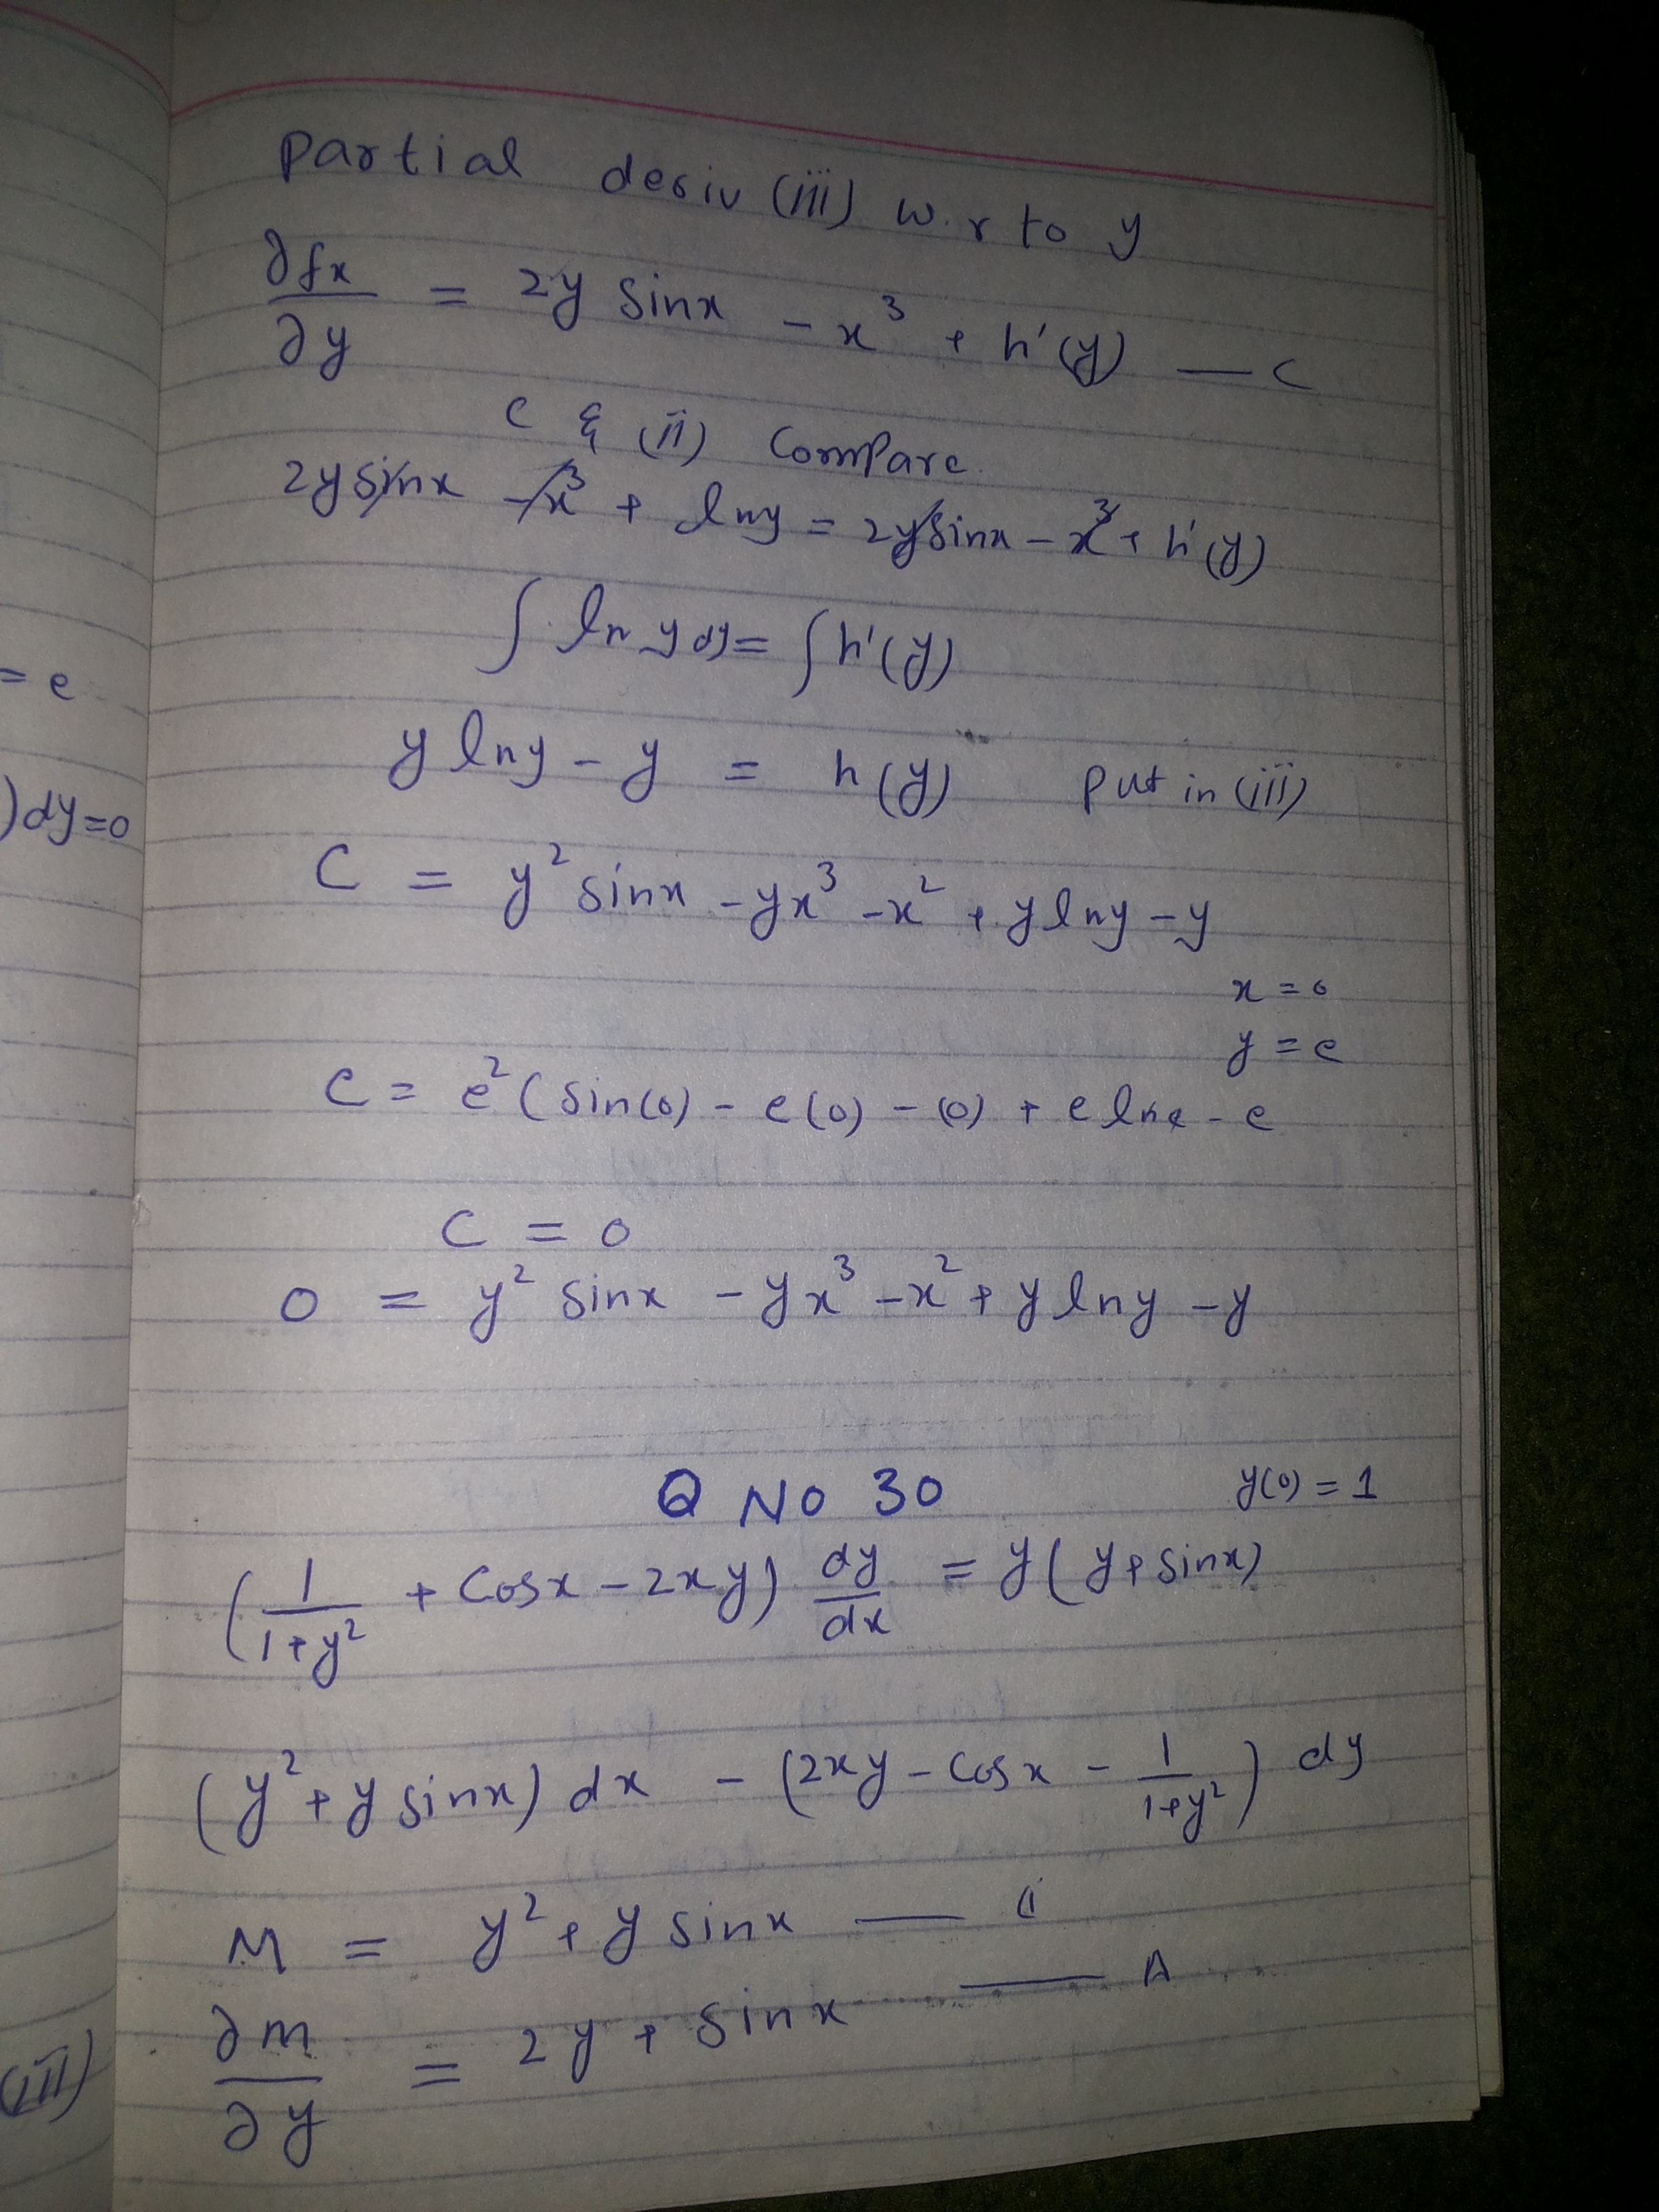 Partial deriv (iii) w.r to y
∂fx/∂y = 2y sinx - x³ + h'(y) — C
C & (ii) Compare.
2y sinx - x³ + lny = 2y sinx - x³ + h'(y)
∫ ln y dy = ∫ h'(y)
y lny - y = h(y) Put in (iii)
C = y² sinx - yx³ - x² + y lny - y
x = 0
y = e
C = e² (sin(0) - e(0) - (0) + e lne - e
C = 0
0 = y² sinx - yx³ - x² + y lny - y
Q NO 30 y(0) = 1
(1/1+y² + Cosx - 2xy) dy/dx = y(y + sinx)
(y² + y sinx) dx - (2xy - Cosx - 1/1+y²) dy
M = y² + y sinx —
∂m/∂y = 2y + sinx — A
= e
)dy=0
(iii)